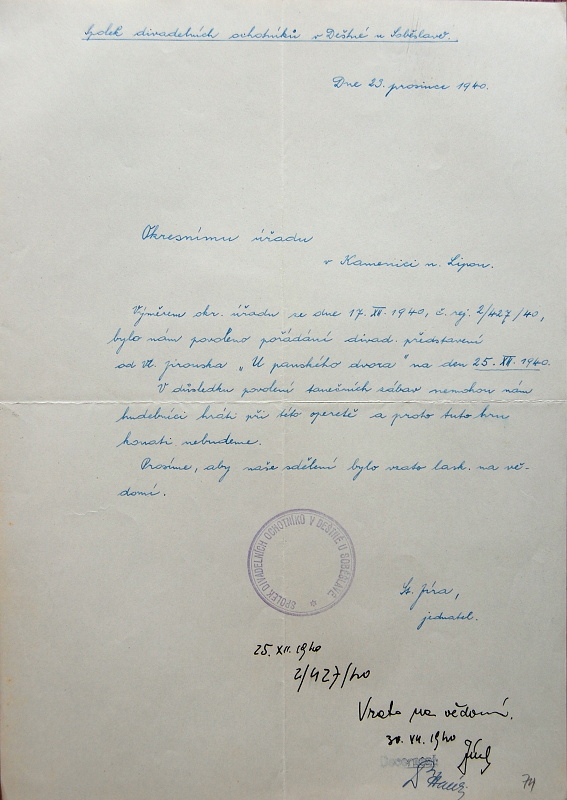 Spolek divadelních ochotníků v Deštné u Soběslavě.
Dne 23. prosince 1940.
Okresnímu úřadu
v Kamenici n. Lipou.
Výměrem okr. úřadu ze dne 17. XII. 1940, č. rej. 2/427/40,
bylo nám povoleno pořádání divad. představení
od Vl. Jirouska „U panského dvora" na den 25. XII. 1940.
V důsledku povolení tanečních zábav nemohou nám
hudebníci hráti při této operetě a proto tuto hru
konati nebudeme.
Prosíme, aby naše sdělení bylo vzato lask. na vě-
domí.
SPOLEK DIVADELNÍCH OCHOTNÍKŮ V DEŠTNÉ U SOBĚSLAVĚ
St. Jíra,
jednatel.
25. XII. 1940
2/427/40
Vzato na vědomí.
30. XII. 1940
74